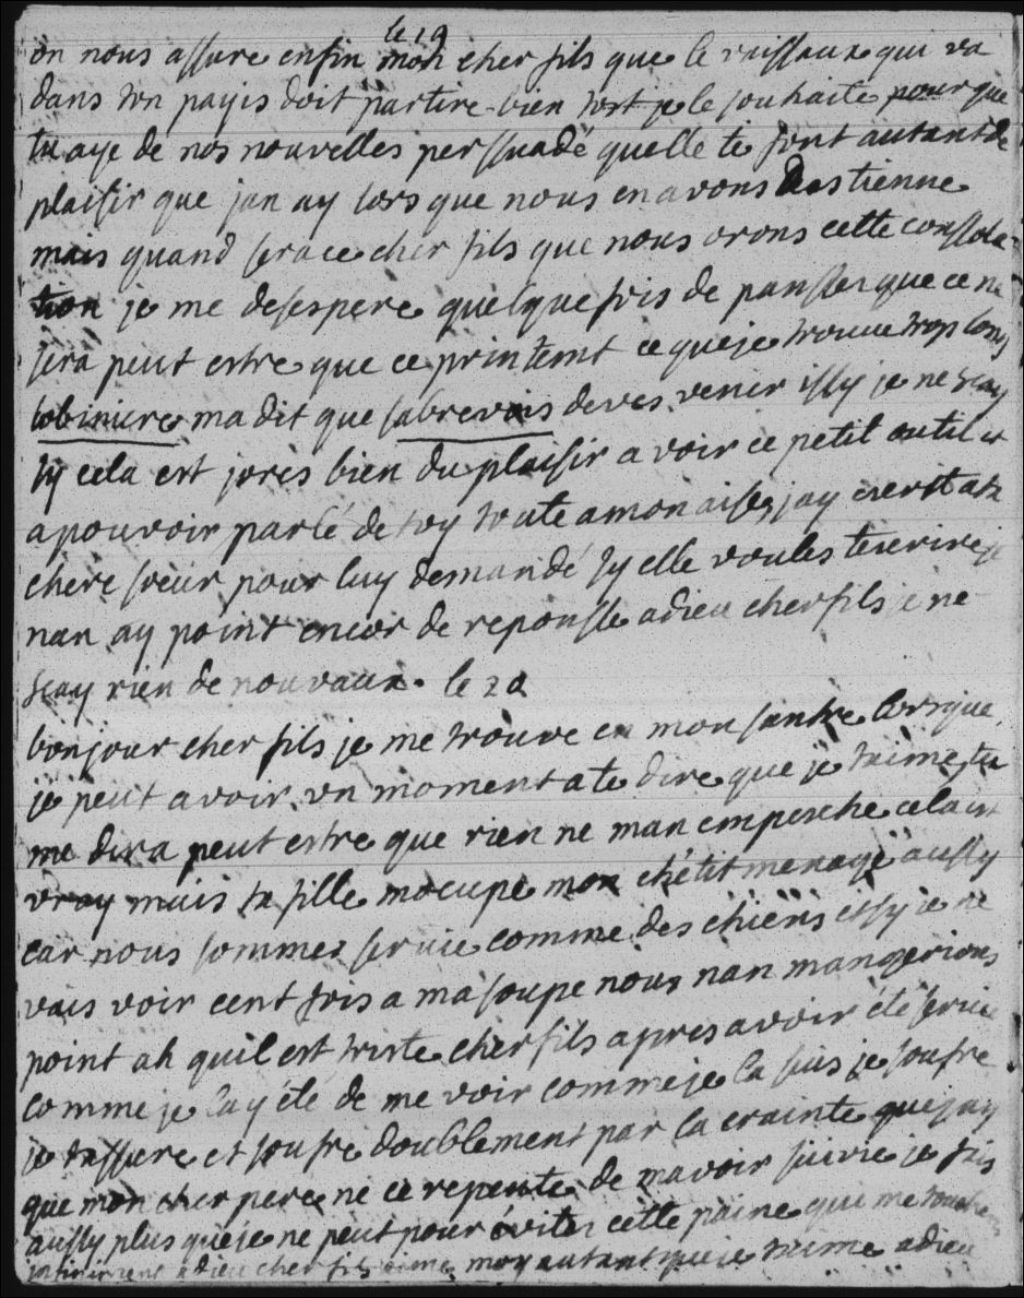 le 19
on nous assure enfin mon cher fils que le vaissaux qui va
dans ton payis doit partire bien tost je le souhaite pour que
tu aye de nos nouvelles perssuadé quelle te font autant de
plaisir que jan ay lors que nous en avons des tienne
mais quand serace cher fils que nous orons cette conssola-
tion je me desespere quelque fois de pansser que ce ne
sera peut estre que ce printemt ce que je trouve trop long
lobiniere ma dit que sabrevois deves venir issy je ne scay
sy cela est jores bien du plaisir a voir ce petit outil et
a pouvoir parlé de toy toute a mon aise jay cerit a ta
chere soeur pour luy demandé sy elle voules tescrire je
nan ay point encor de reponsse adieu cher fils je ne
scay rien de nouvaux. le 20
bonjour cher fils je me trouve en mon santre lorsque
je peut avoir un moment a te dire que je taime tu
me dira peut estre que rien ne man empesche cela est
vray mais ta fille mocupe mon chétit menage aussy
car nous sommes servie comme des chiens issy je ne
vais voir cent fois a ma soupe nous nan mangerions
point ah quil est triste cher fils apres avoir été servie
comme je lay été de me voir comme je la suis je soufre
je tassure et soufre doublement par la crainte que jay
que mon cher pere ne ce repente de mavoir suivie je fais
aussy plus que je ne peut pour éviter cette paine qui me touche
infiniment adieu cher fils aime moy autant que je taime adieu